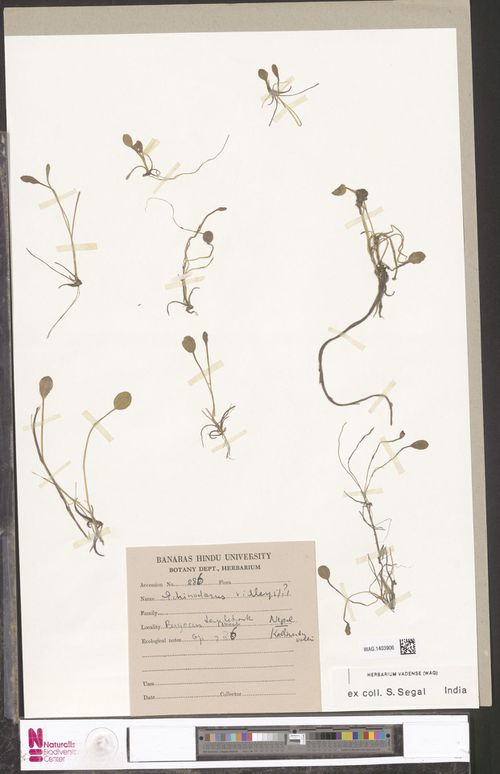 BANARAS HINDU UNIVERSITY
BOTANY DEPT., HERBARIUM
Accession No. 286 Flora
Name Echinodorus ridleyi?
Family
Locality Nepal
Ecological notes
Uses
Date Collector
WAG.1403906
HERBARIUM VADENSE (WAG)
ex coll. S. Segal India
Naturalis
Biodiversity
Center